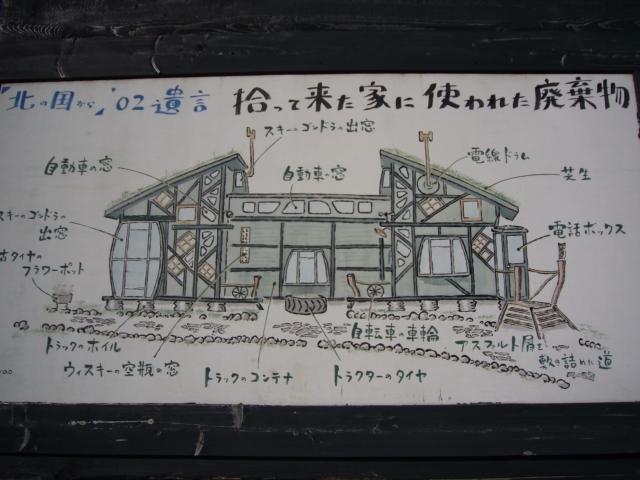 「北の国から」'02遺言 拾って来た家に使われた廃棄物
スキーゴンドラの出窓
自動車の窓
自動車の窓
電線ドラム
芝生
スキーのゴンドラの
出窓
電話ボックス
古タイヤの
フラワーポット
トラックのホイル
自転車の車輪
アスファルト屑を
敷き詰めた道
ウィスキーの空瓶の窓
トラックのコンテナ
トラクターのタイヤ